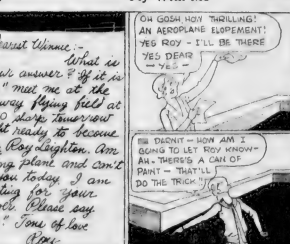 earest Winnie:-
What is
answer? If it is
" meet me at the
way flying field at
sharp tomorrow
ready to become
Roy Leighton. Am
plane and can't
you today. I am
for your
Please say
" Tons of love
Roy
OH GOSH, HOW THRILLING!
AN AEROPLANE ELOPEMENT!
YES ROY - I'LL BE THERE
YES DEAR
- YES -
DARNIT - HOW AM I
GOING TO LET ROY KNOW -
AH - THERE'S A CAN OF
PAINT - THAT'LL
DO THE TRICK"